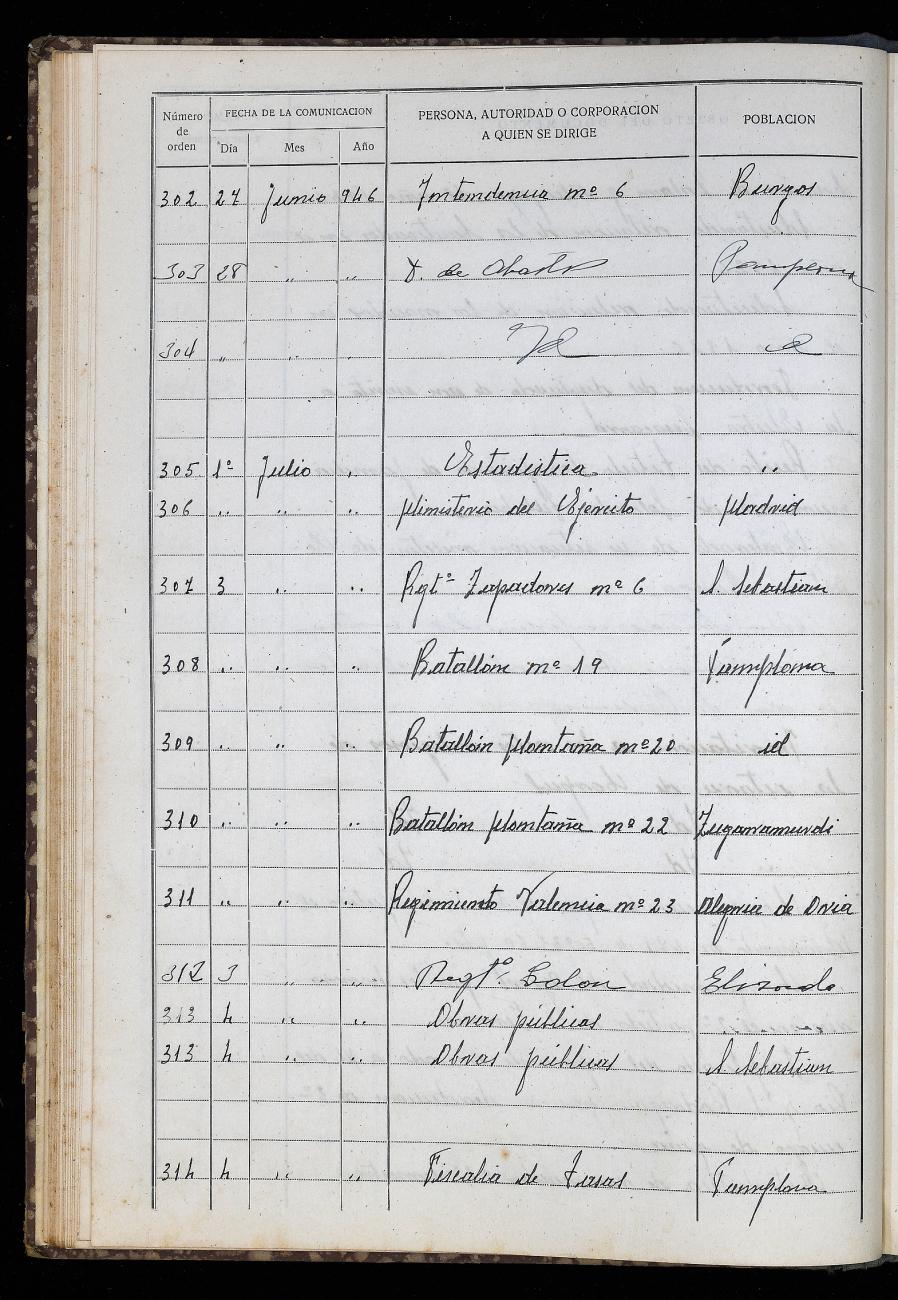 Número de orden
FECHA DE LA COMUNICACION
Día Mes Año
PERSONA, AUTORIDAD O CORPORACION
A QUIEN SE DIRIGE
POBLACION
302 27 Junio 946 Intendencia nº 6 Burgos
303 28 " " D. de Abastos Pamplona
304 " " " Id id
305 1º Julio " Estadistica "
306 " " " Ministerio del Ejército Madrid
307 3 " " Rgtº Zapadores nº 6 S. Sebastian
308 " " " Batallón nº 19 Pamplona
309 " " " Batallón Montaña nº 20 id
310 " " " Batallón Montaña nº 22 Zugarramurdi
311 " " " Regimiento Valencia nº 23 Alegria de Oria
312 3 " " Regtº. Colon Elizondo
313 4 " " Obras públicas
313 4 " " Obras públicas S. Sebastian
314 4 " " Fiscalia de Tasas Pamplona